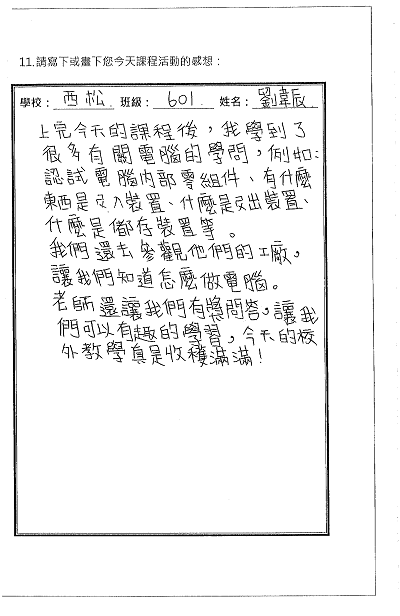 11.請寫下或畫下您今天課程活動的感想：
學校： 西松 班級： 601. 姓名： 劉韋辰
上完今天的課程後，我學到了
很多有關電腦的學問，例如：
認試電腦內部零組件、有什麼
東西是入裝置、什麼是出裝置、
什麼是儲存裝置等。
我們還去參觀他們的工廠，
讓我們知道怎麼做電腦。
老師還讓我們有獎問答，讓我
們可以有趣的學習，今天的校
外教學真是收穫滿滿！